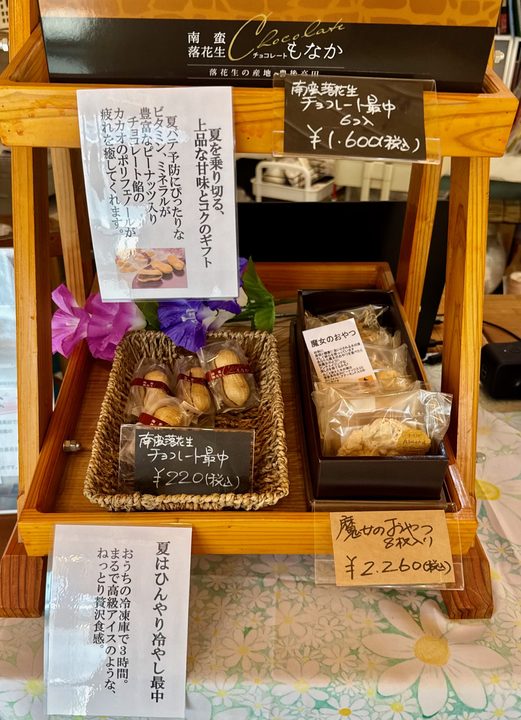 南蛮
落花生
Chocolate
チョコレートもなか
落花生の産地 豊後高田
南蛮落花生
チョコレート最中
6コ入
¥1.600(税込)
夏を乗り切る、
上品な甘味とコクのギフト
夏バテ予防にぴったりな
ビタミン、ミネラルが
豊富なピーナッツ入り
チョコレート餡の
カカオのポリフェノールが
疲れを癒してくれます。
魔女のおやつ
南蛮落花生
チョコレート最中
¥220(税込)
魔女のおやつ
8枚入り
¥2.260(税込)
夏はひんやり冷やし最中
おうちの冷凍庫で3時間。
まるで高級アイスのような、
ねっとり贅沢食感。